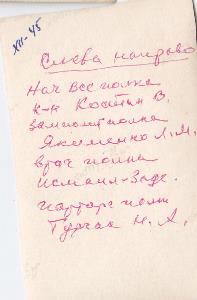 XII-45
Слева направо
Нач все полка
к-н Костин В.
замполит полка
Якименко Л. М.
врач полка
Исмаил-Заде.
парторг полк
Турчак Н. А.